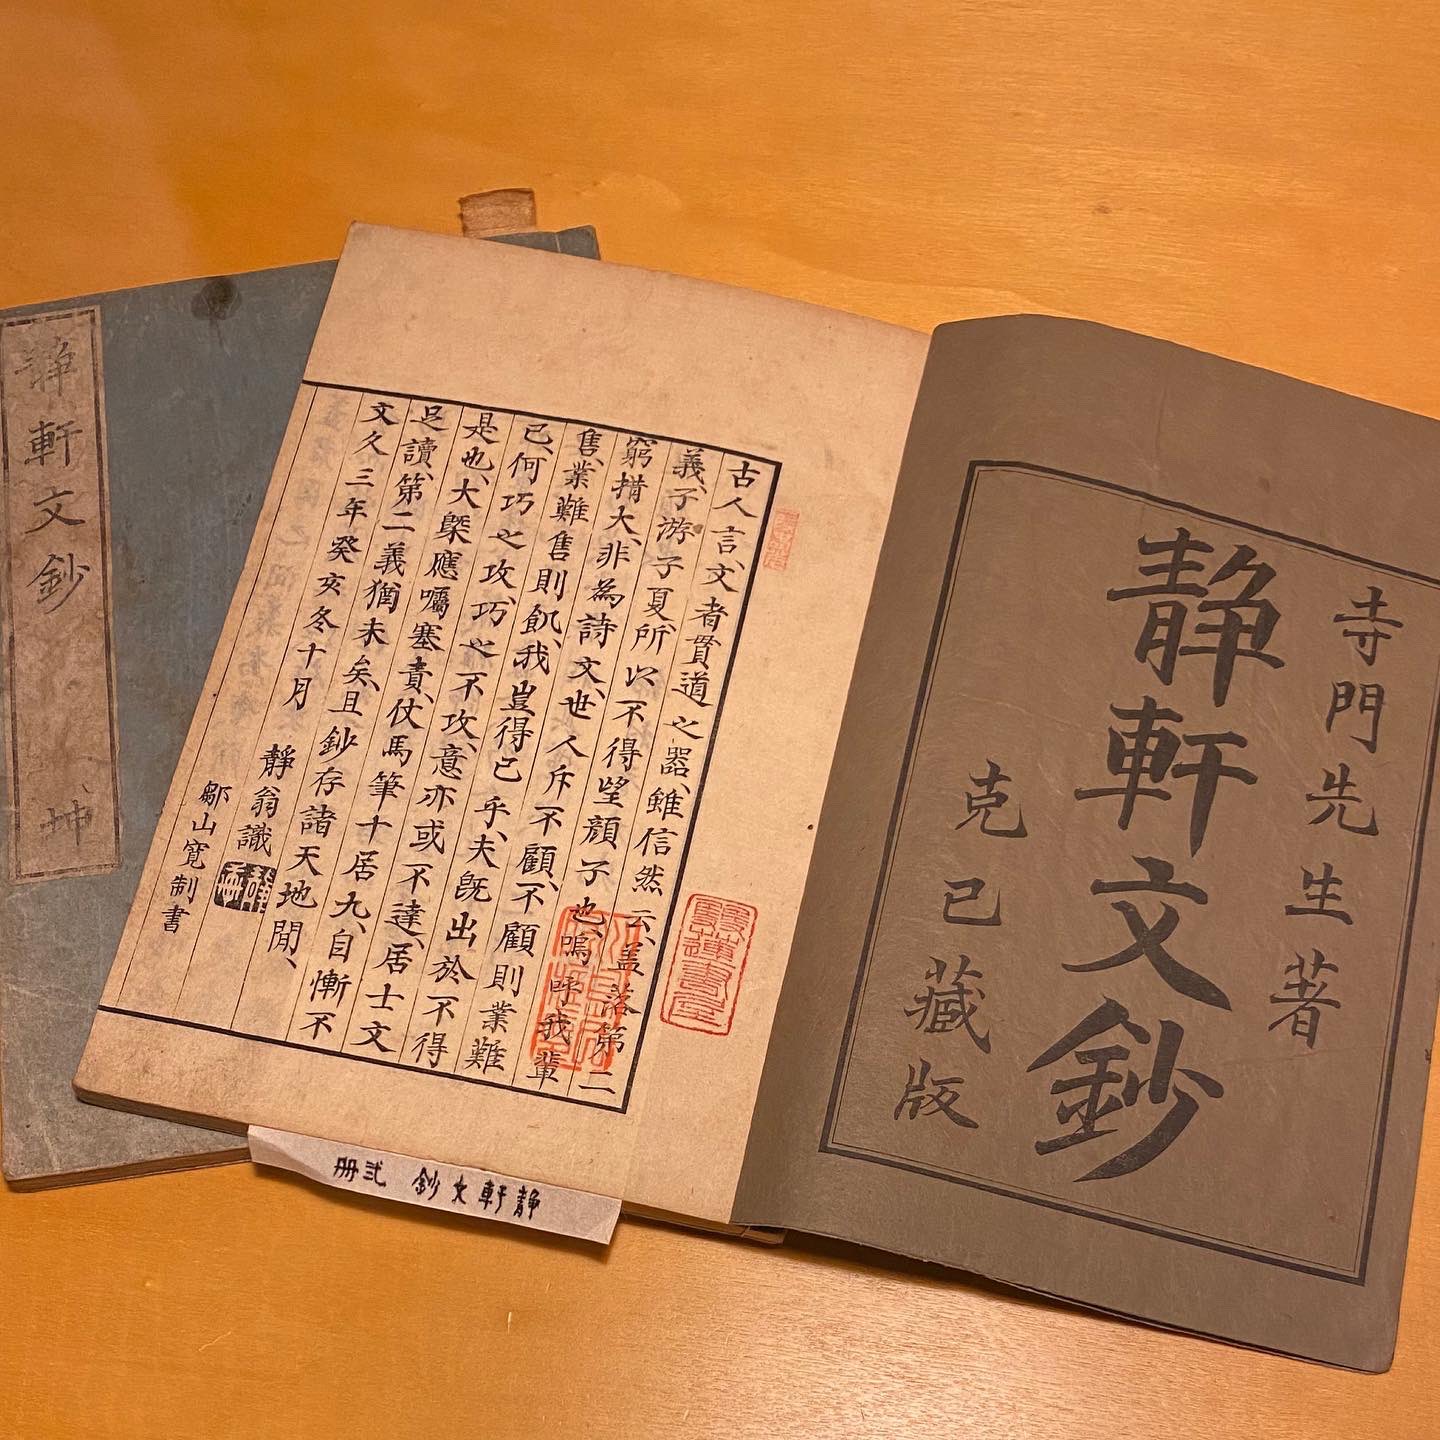 寺門先生著
静軒文鈔
克己藏版
古人言、文者貫道之器、雖信然云、盖落第二
義、子游子夏、所以不得望顔子也、嗚呼、我輩
窮措大、非為詩文、世人斥不顧、不顧則業難
售、業難售則飢、我豈得已乎、夫既出於不得
已、何巧之攻、巧之不攻、意亦或不達、居士文
是也、大槩應囑塞責、仗馬筆十居九、自慚不
足讀、第二義猶未矣、且鈔存諸天地間、
文久三年癸亥冬十月　靜翁識
鄒山寛制書
静軒文鈔　弐册
静軒文鈔　坤